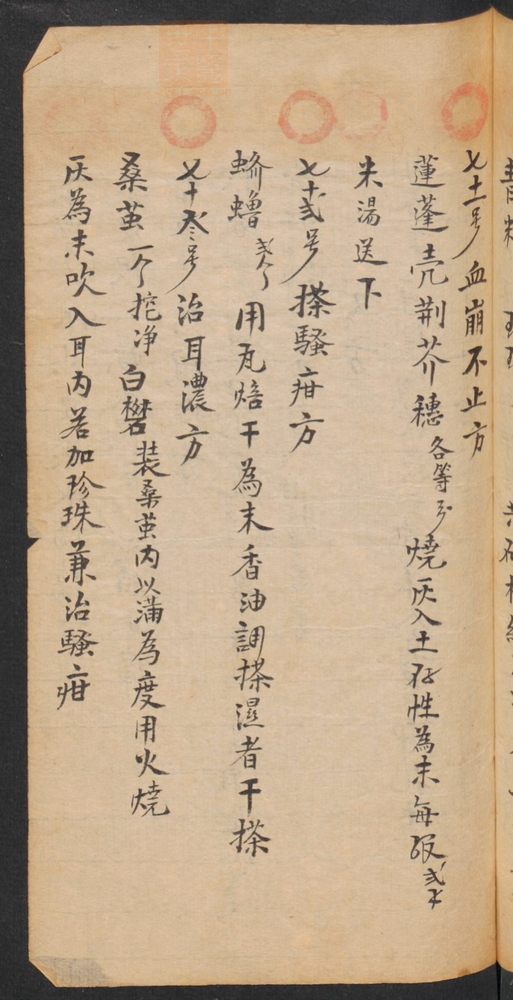 七十一号 血崩不止方
蓮蓬壳荆芥穗各等分燒灰入土存性為末每服弍
米湯送下
七十弍号 搽騷疳方
蛴螬弍个用瓦焙干為末香油調搽濕者干搽
七十叁号治耳濃方
桑茧一个挖净白礬装桑茧内以滿為度用火燒
灰為末吹入耳内若加珍珠兼治騷疳